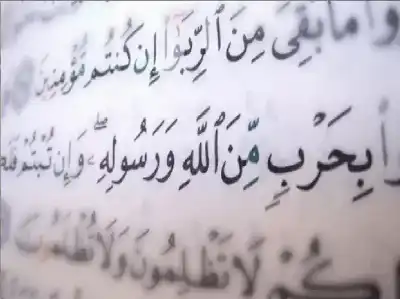 وا مَا بَقِىَ مِنَ ٱلرِّبَوٰٓا۟ إِن كُنتُم مُّؤْمِنِينَ
ا بِحَرْبٍ مِّنَ ٱللَّهِ وَرَسُولِهِۦ ۖ وَإِن تُبْتُمْ فَلَ
كُمْ لَا تَظْلِمُونَ وَلَا تُظْلَمُونَ